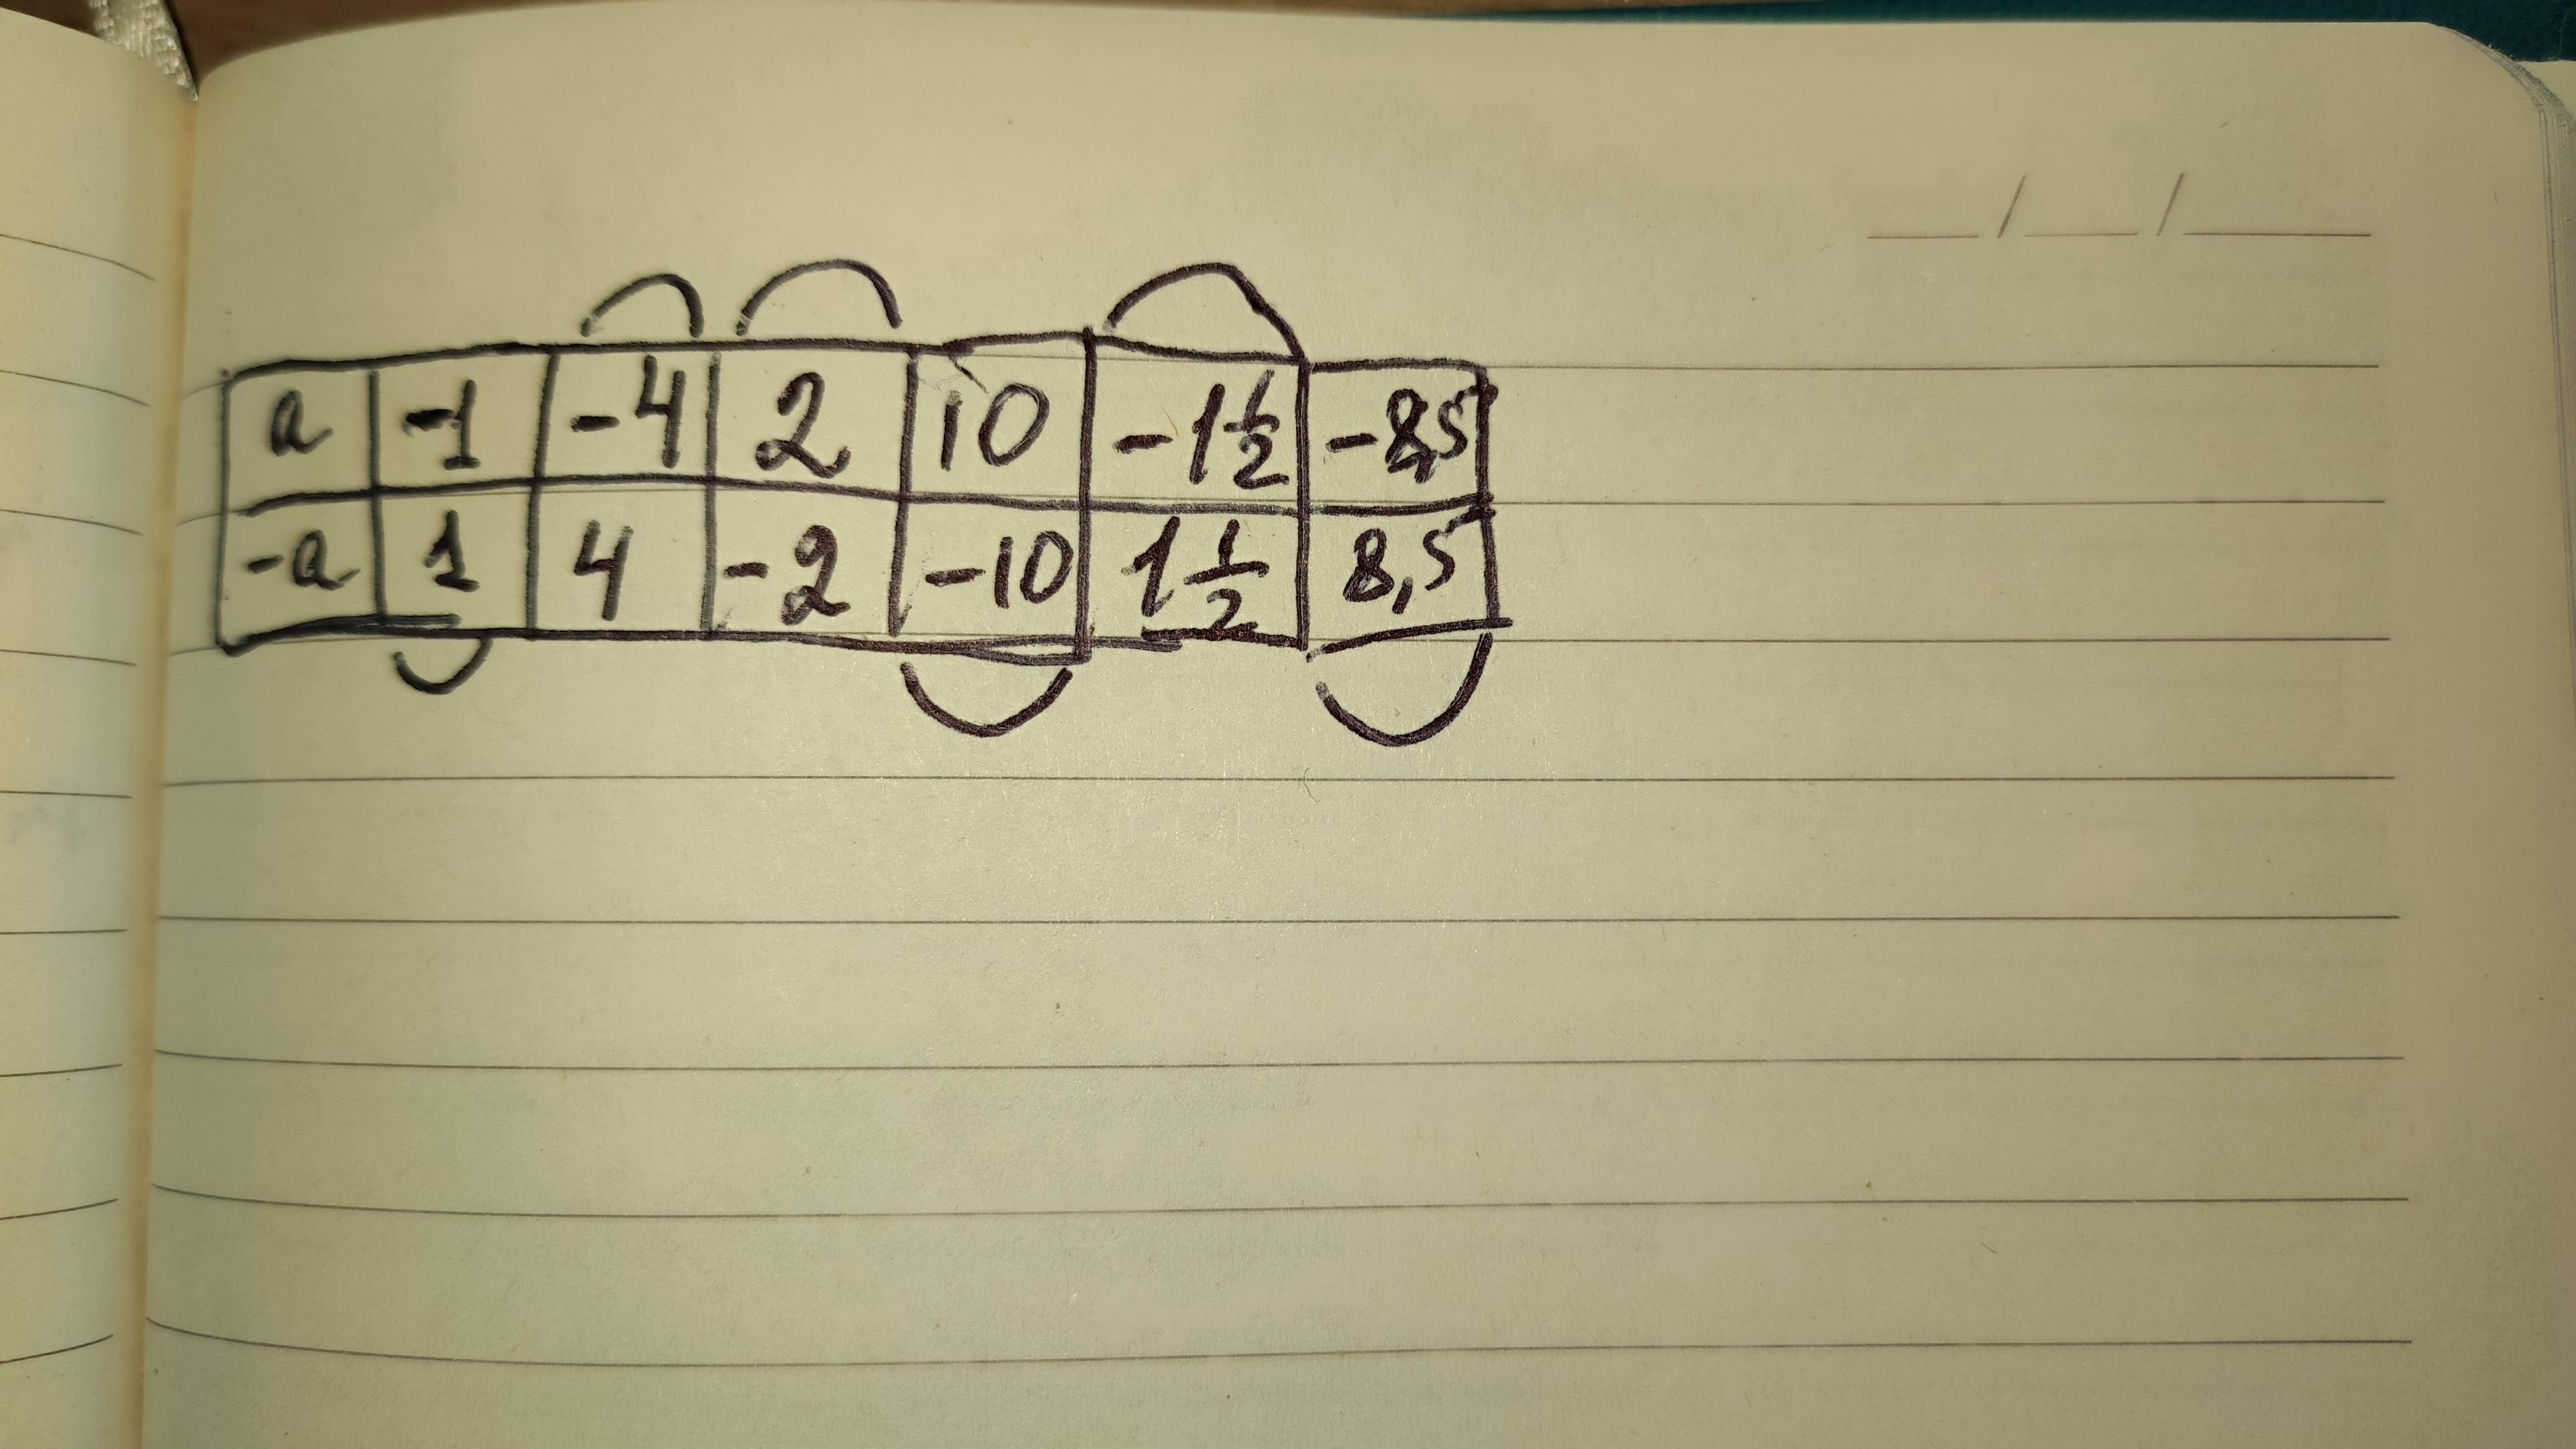 a -1 -4 2 10 -1 1/2 -8,5
-a 1 4 -2 -10 1 1/2 8,5